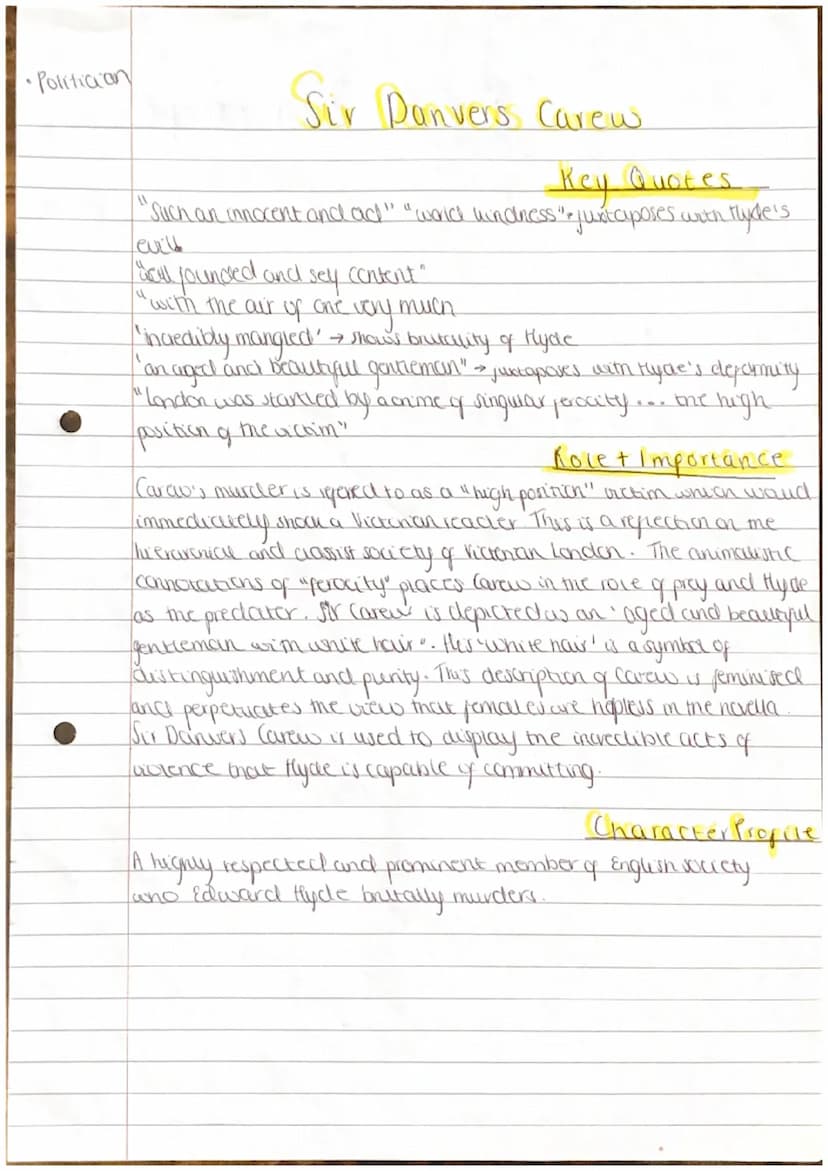 • Politician
Sir Danvers Carew
Key Quotes
"Such an innocent and old" "world kindness" • juxtaposes with Hyde's
evil
"well founded and self content"
"with the air of one very much
'incredibly mangled' → shows brutality of Hyde
'an aged and beautiful gentleman" → juxtaposes with Hyde's deformity
"London was startled by a crime of singular ferocity... the high
position of the victim"
Role + Importance
Carew's murder is refered to as a "high position" victim which would
immediately shock a Victorian reader. This is a reflection on the
hierarchical and classist society of Victorian London. The animalistic
connotations of "ferocity" places Carew in the role of prey and Hyde
as the predator. Sir Carew is depicted as an 'aged and beautiful
gentleman with white hair". His 'white hair' is a symbol of
distinguishment and purity. This description of Carew is feminised
and perpetuates the view that females are hopless in the novella.
Sir Danvers Carew is used to display the incredible acts of
violence that Hyde is capable of committing.
Character Profile
A highly respected and prominent member of English society
who Edward Hyde brutally murders.